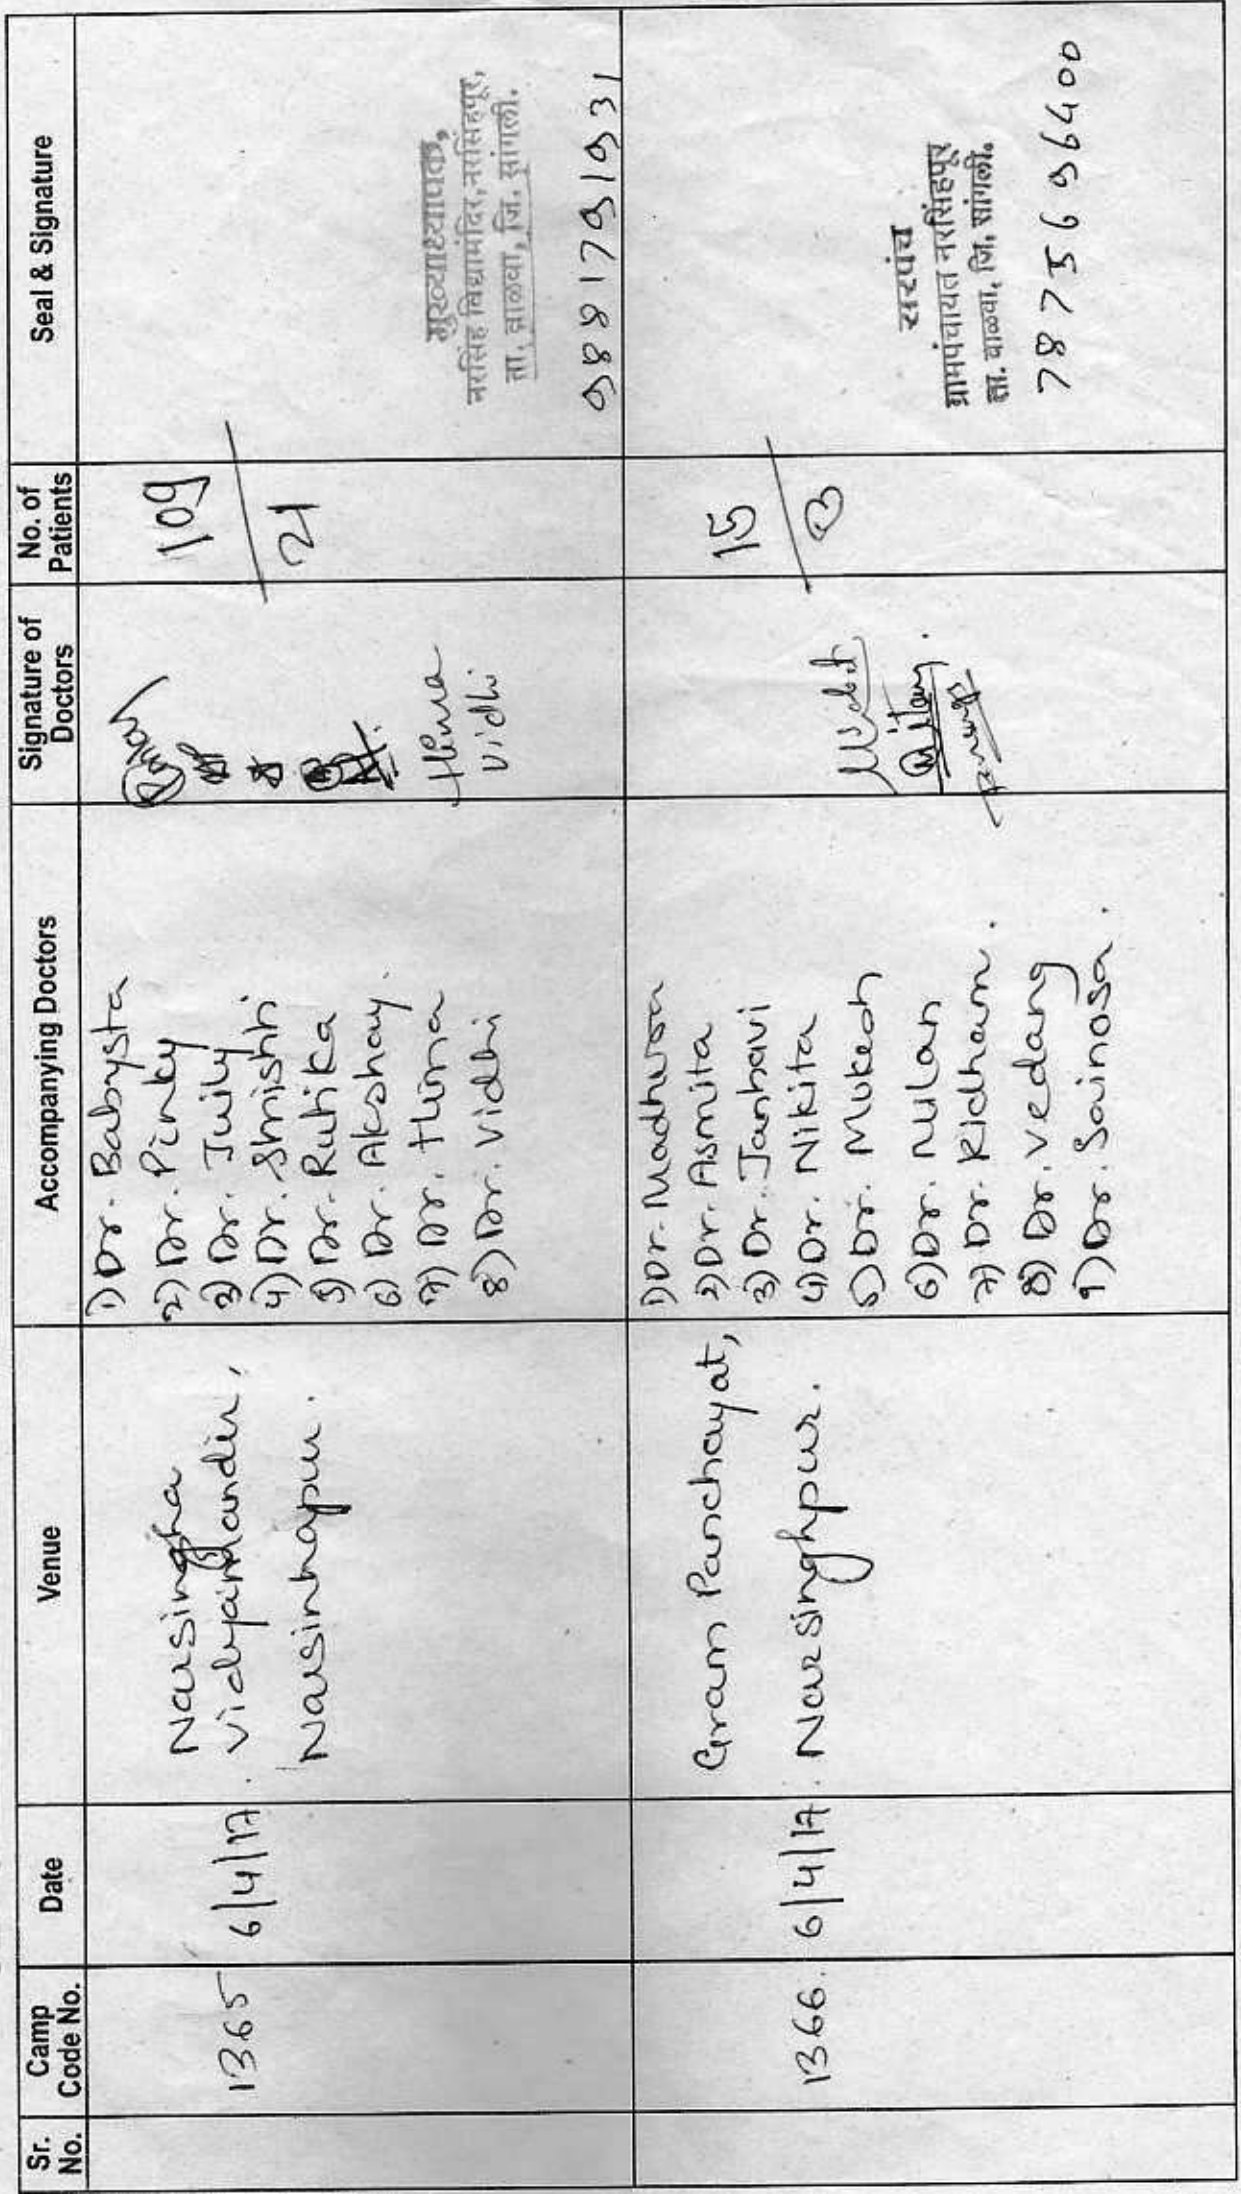 Sr. No.
Camp Code No.
Date
Venue
Accompanying Doctors
Signature of Doctors
No. of Patients
Seal & Signature
1365
6/4/17.
Narsingha
Vidyamandir,
Narsinhapur.
1) Dr. Babysta
2) Dr. Pinky
3) Dr. Juily
4) Dr. Shrishti
5) Dr. Rutika
6) Dr. Akshay.
7) Dr. Hima
8) Dr. Vidhi
Hema
Vidhi
109
21
मुख्याध्यापक,
नरसिंह विद्यामंदिर, नरसिंहपूर,
ता. वाळवा, जि. सांगली.
9881791931
1366.
6/4/17.
Gram Panchayat,
Narsinghpur.
1) Dr. Madhura
2) Dr. Asmita
3) Dr. Janhavi
4) Dr. Nikita
5) Dr. Mukesh
6) Dr. Milan
7) Dr. Ridham.
8) Dr. Vedang
9) Dr. Sainosa.
15
3
सरपंच
ग्रामपंचायत नरसिंहपूर
ता. वाळवा, जि. सांगली.
7875696400